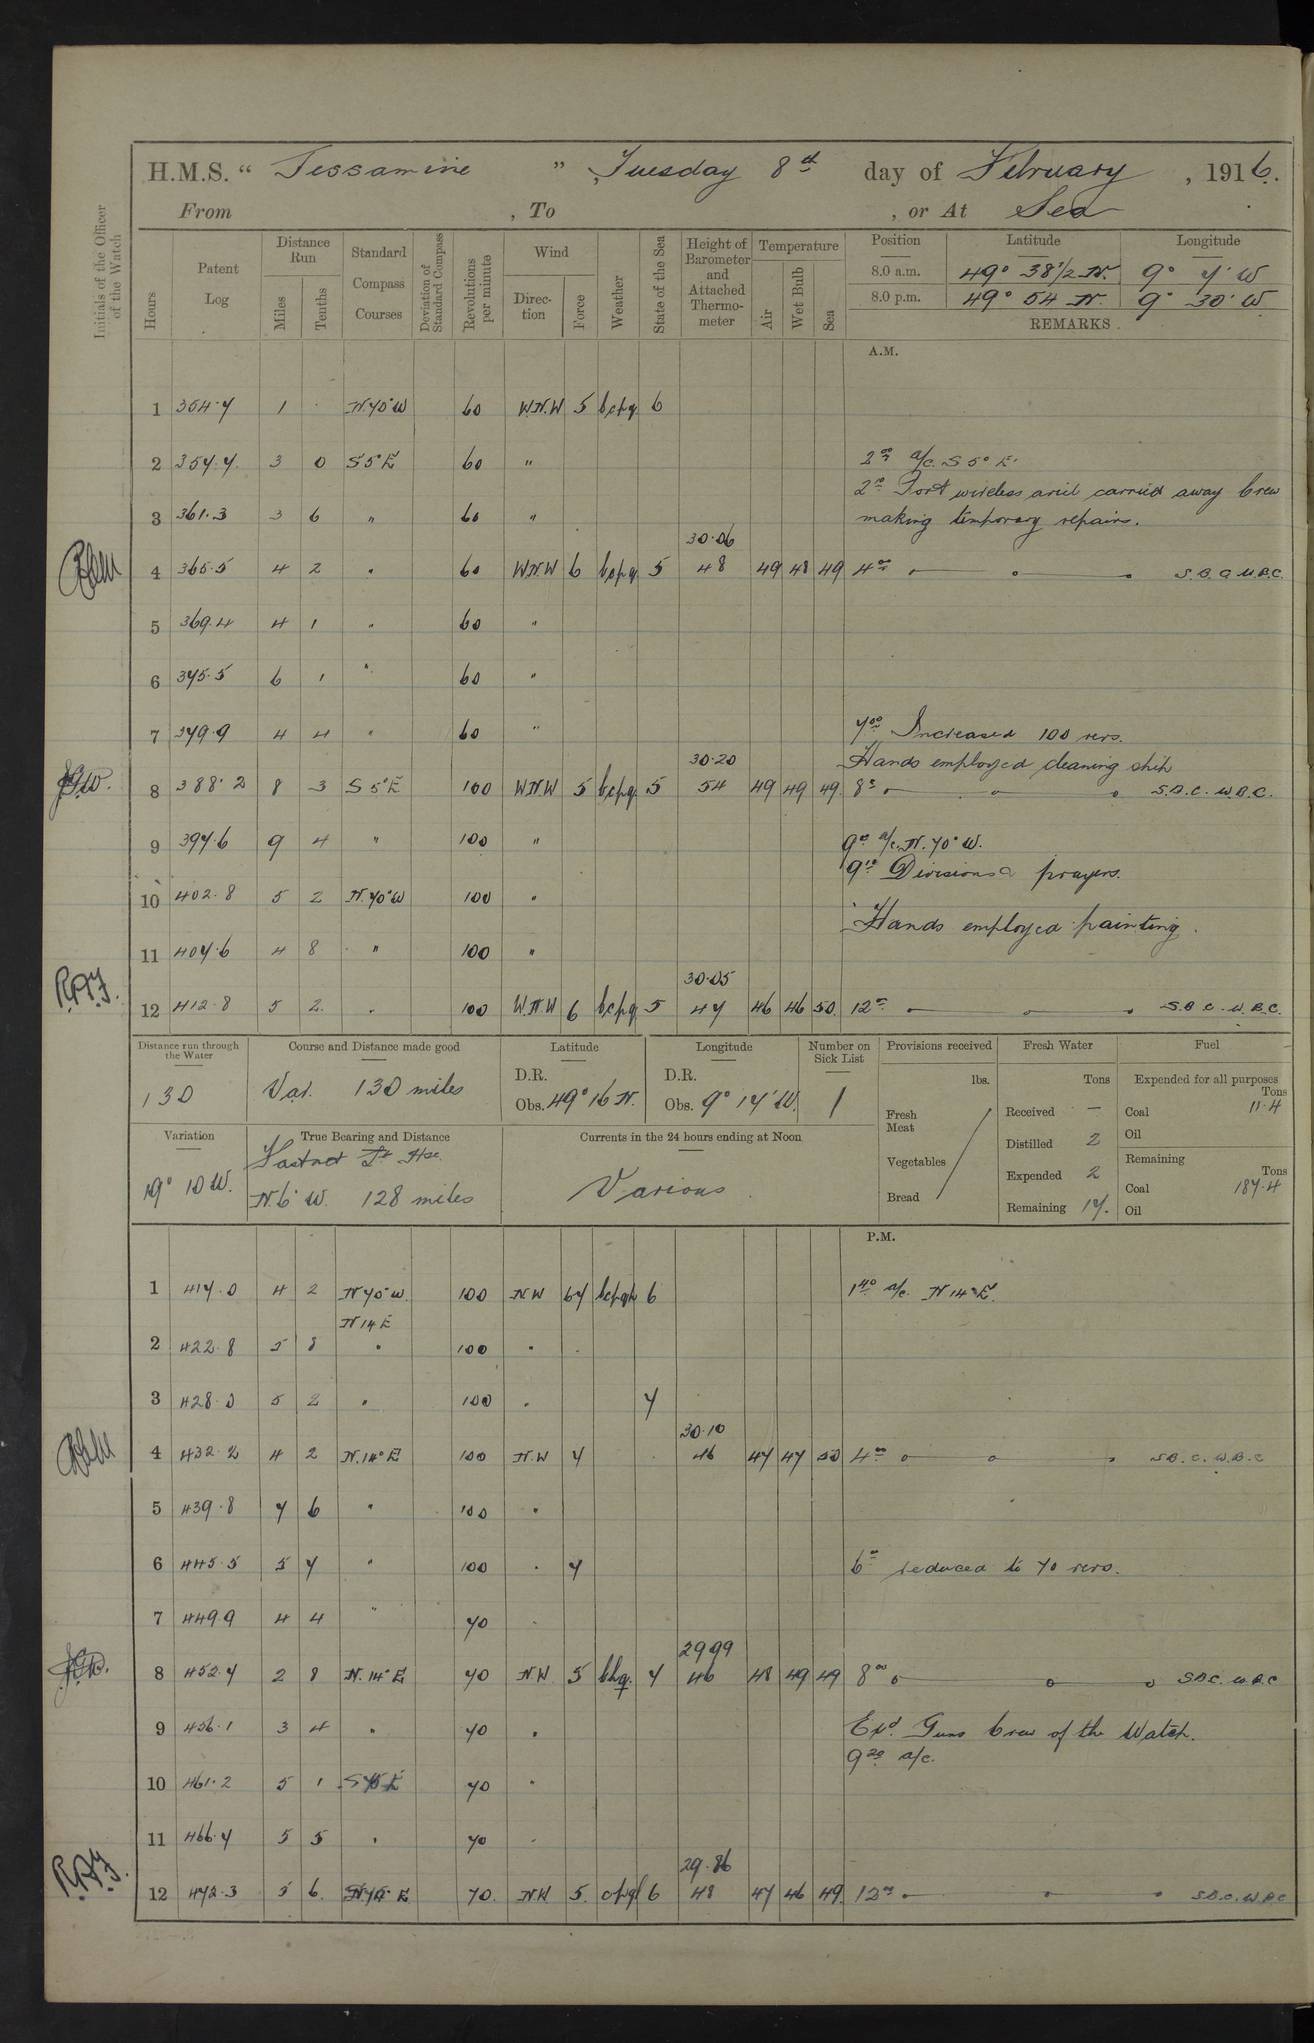 H.M.S. “ Jessamine ” , Tuesday 8th day of February , 1916.
From , To , or At Sea
Initials of the Officer of the Watch
Hours
Patent Log
Distance Run
Miles
Tenths
Standard Compass Courses
Deviation of Standard Compass
Revolutions per minute
Wind
Direction
Force
Weather
State of the Sea
Height of Barometer and Attached Thermometer
Temperature
Air
Wet Bulb
Sea
Position Latitude Longitude
8.0 a.m. 49° 38 1/2 N. 9° 7' W
8.0 p.m. 49° 54 N. 9° 30' W
REMARKS
A.M.
1 354.7 1 · N.70°W 60 W.N.W 5 bcpq 6
2 357.7 3 0 S5°E 60 " 2 00 a/c. S 5° E.
2 10 Port wireless ariel carried away Crew
3 361.3 3 6 " 60 " making temporary repairs.
30.06
4 365.5 4 2 " 60 WNW 6 bcpq 5 48 49 48 49 4 00 S.B.C W.B.C.
5 369.4 4 1 " 60 "
6 375.5 6 1 " 60 "
7 379.9 4 4 " 60 " 7 00 Increased 100 revs.
30.20 Hands employed cleaning ship
8 388.2 8 3 S 5°E 100 WNW 5 bcpq 5 54 49 49 49 8 00 S.B.C. W.B.C.
9 397.6 9 4 " 100 " 9 00 a/c. N. 70° W.
9 10 Divisions & prayers.
10 402.8 5 2 N.70°W 100 "
Hands employed painting.
11 407.6 4 8 " 100 "
30.05
R.A.F. 12 412.8 5 2 " 100 W.N.W 6 bcpq 5 47 46 46 50 12 00 S.B.C. W.B.C.
Distance run through the Water 130
Course and Distance made good Var. 130 miles
Latitude D.R. Obs. 49° 16 N.
Longitude D.R. Obs. 9° 17' W.
Number on Sick List 1
Provisions received lbs.
Fresh Meat
Vegetables
Bread
Fresh Water Tons
Received —
Distilled 2
Expended 2
Remaining 17.
Fuel
Expended for all purposes Tons
Coal 11.4
Oil
Remaining Tons
Coal 187.4
Oil
Variation 19° 10 W.
True Bearing and Distance Fastnet Lt Hse.
N.6° W. 128 miles
Currents in the 24 hours ending at Noon Various
P.M.
1 417.0 4 2 N 70° W. 100 NW 67 bcpqh 6 1 40 a/c. N 14° E.
N 14 E
2 422.8 5 8 " 100 "
3 428.0 5 2 " 100 " 7
30.10
4 432.2 4 2 N.14°E 100 N.W 7 46 47 47 50 4 00 S.B.C. W.B.C
5 439.8 7 6 " 100 "
6 445.5 5 7 " 100 " 7 6 00 reduced to 70 revs.
7 449.9 4 4 " 70 "
29.99
8 452.7 2 8 N.14°E 70 NW 5 bhq. 7 46 48 49 49 8 00 S.B.C. W.B.C
9 456.1 3 4 " 70 " Exd. Guns Crew of the Watch.
9 20 a/c.
10 461.2 5 1 70 "
11 466.7 5 5 " 70 "
29.86
R.A.F. 12 472.3 5 6 70 NW 5 cpq 6 48 47 46 49 12 00 S.B.C. W.B.C